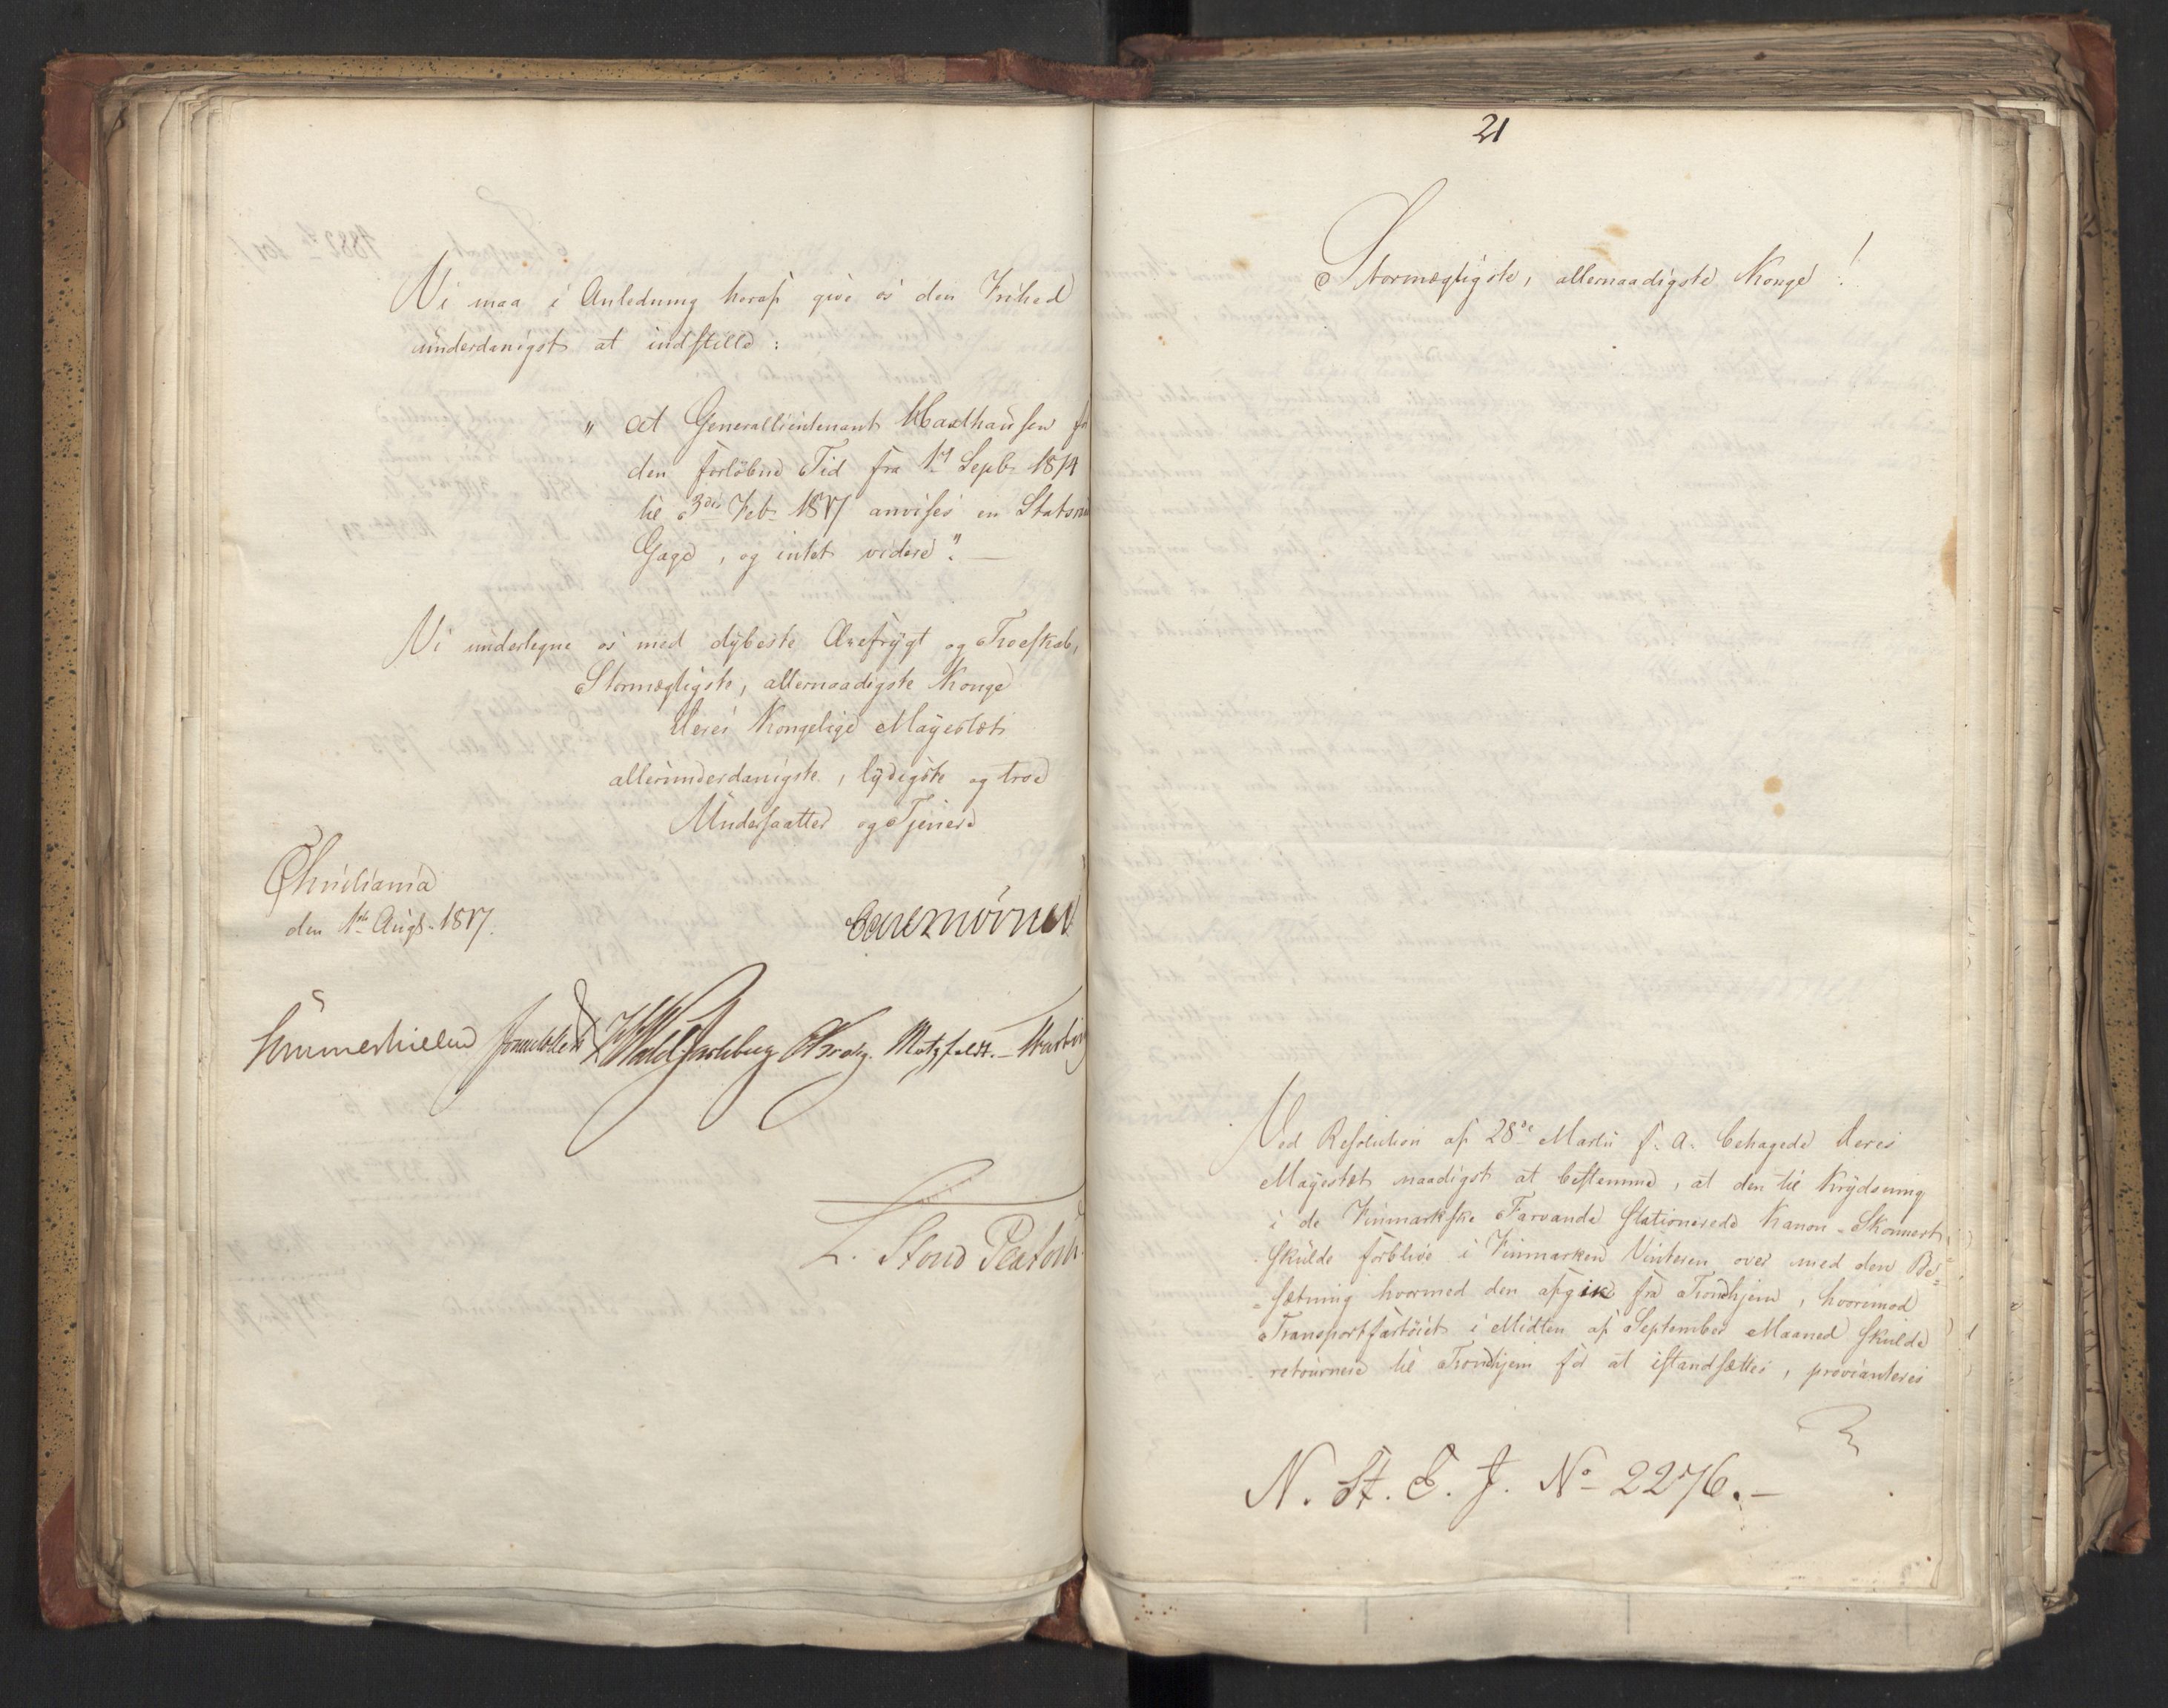 Vi maa i Anledning heraf give os den Frihed
underdanigst at indstille:
„ at Generallieutenant Haxthausen for
den forløbne Tid fra 1ste Septb: 1814
til 3die Feb: 1817 anvises en Statsraads
Gage, og intet videre". —
Vi undertegne os med dybeste Ærefrygt og Troeskab,
Stormægtigste, allernaadigste Konge
Deres Kongelige Mayestæts
allerunderdanigste, lydigste og troe
Undersaatter og Tjenere
Christiania
den 1ste Augs. 1817.
Carl Mörner
Sommerhielm JCollett Wedel Jarlsberg Krog. Motzfeldt. —
L. Stoud Platou
21
Stormægtigste, allernaadigste Konge!
Ved Resolution af 28de Martii f. A. behagede Deres
Mayestæt naadigst at bestemme, at den til Krydsning
i de Finmarkske Farvande stationerede Kanon-Skonnert,
skulde forblive i Finmarken Vinteren over med den Be-
sætning hvormed den afgik fra Trondhjem, hvorimod
Transportfartøiet i Midten af September Maaned skulde
retournere til Trondhjem for at istandsættes, provianteres
N. St. E. J. No 2276. —